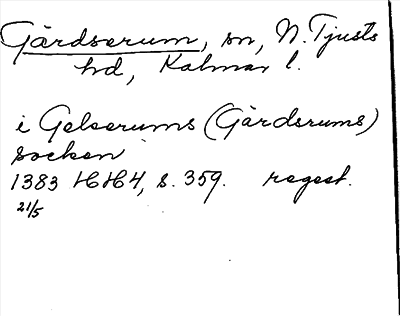 Gärdserum, sn, N. Tjusts
hd, Kalmar l.
i Gelserums (Gärdsrums)
socken
1383 HH4, s. 359. regest.
21/5